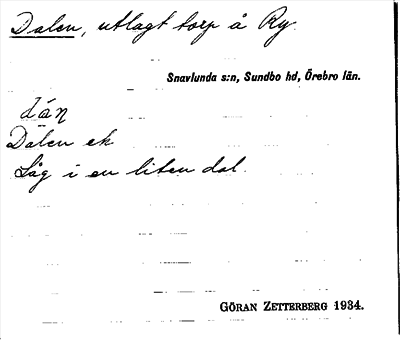 Dalen, utlagt torp å Ry.
Snavlunda s:n, Sundbo hd, Örebro län.
dán
Dalen ek
Låg i en liten dal.
GÖRAN ZETTERBERG 1934.